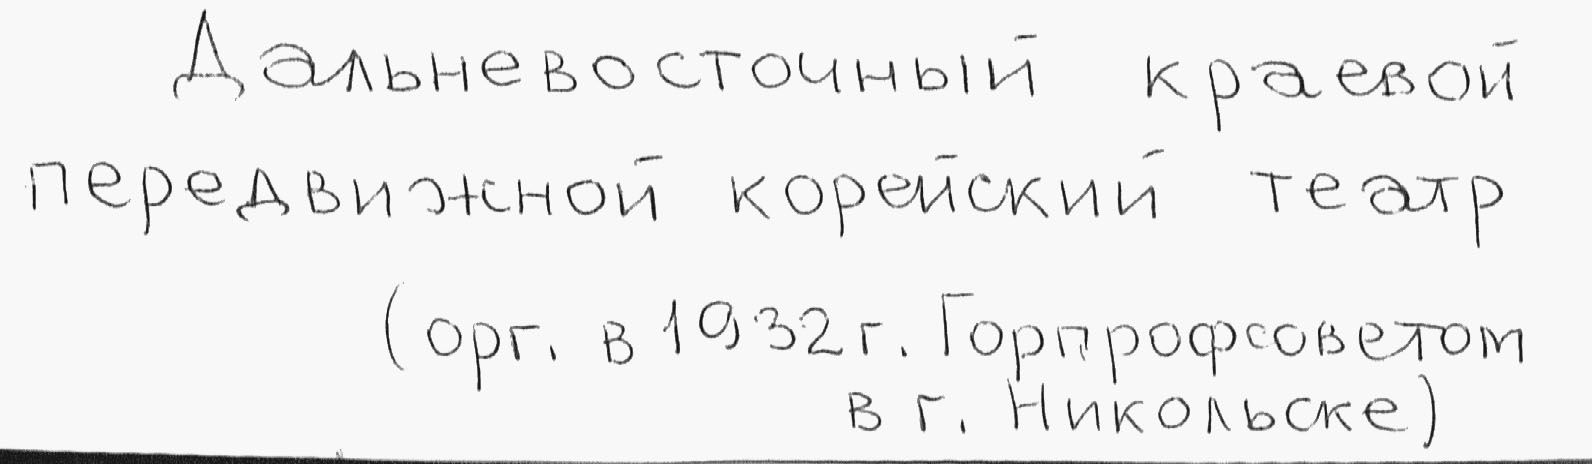 Дальневосточный краевой
передвижной корейский театр
(орг. в 1932 г. Горпрофсоветом
в г. Никольске)